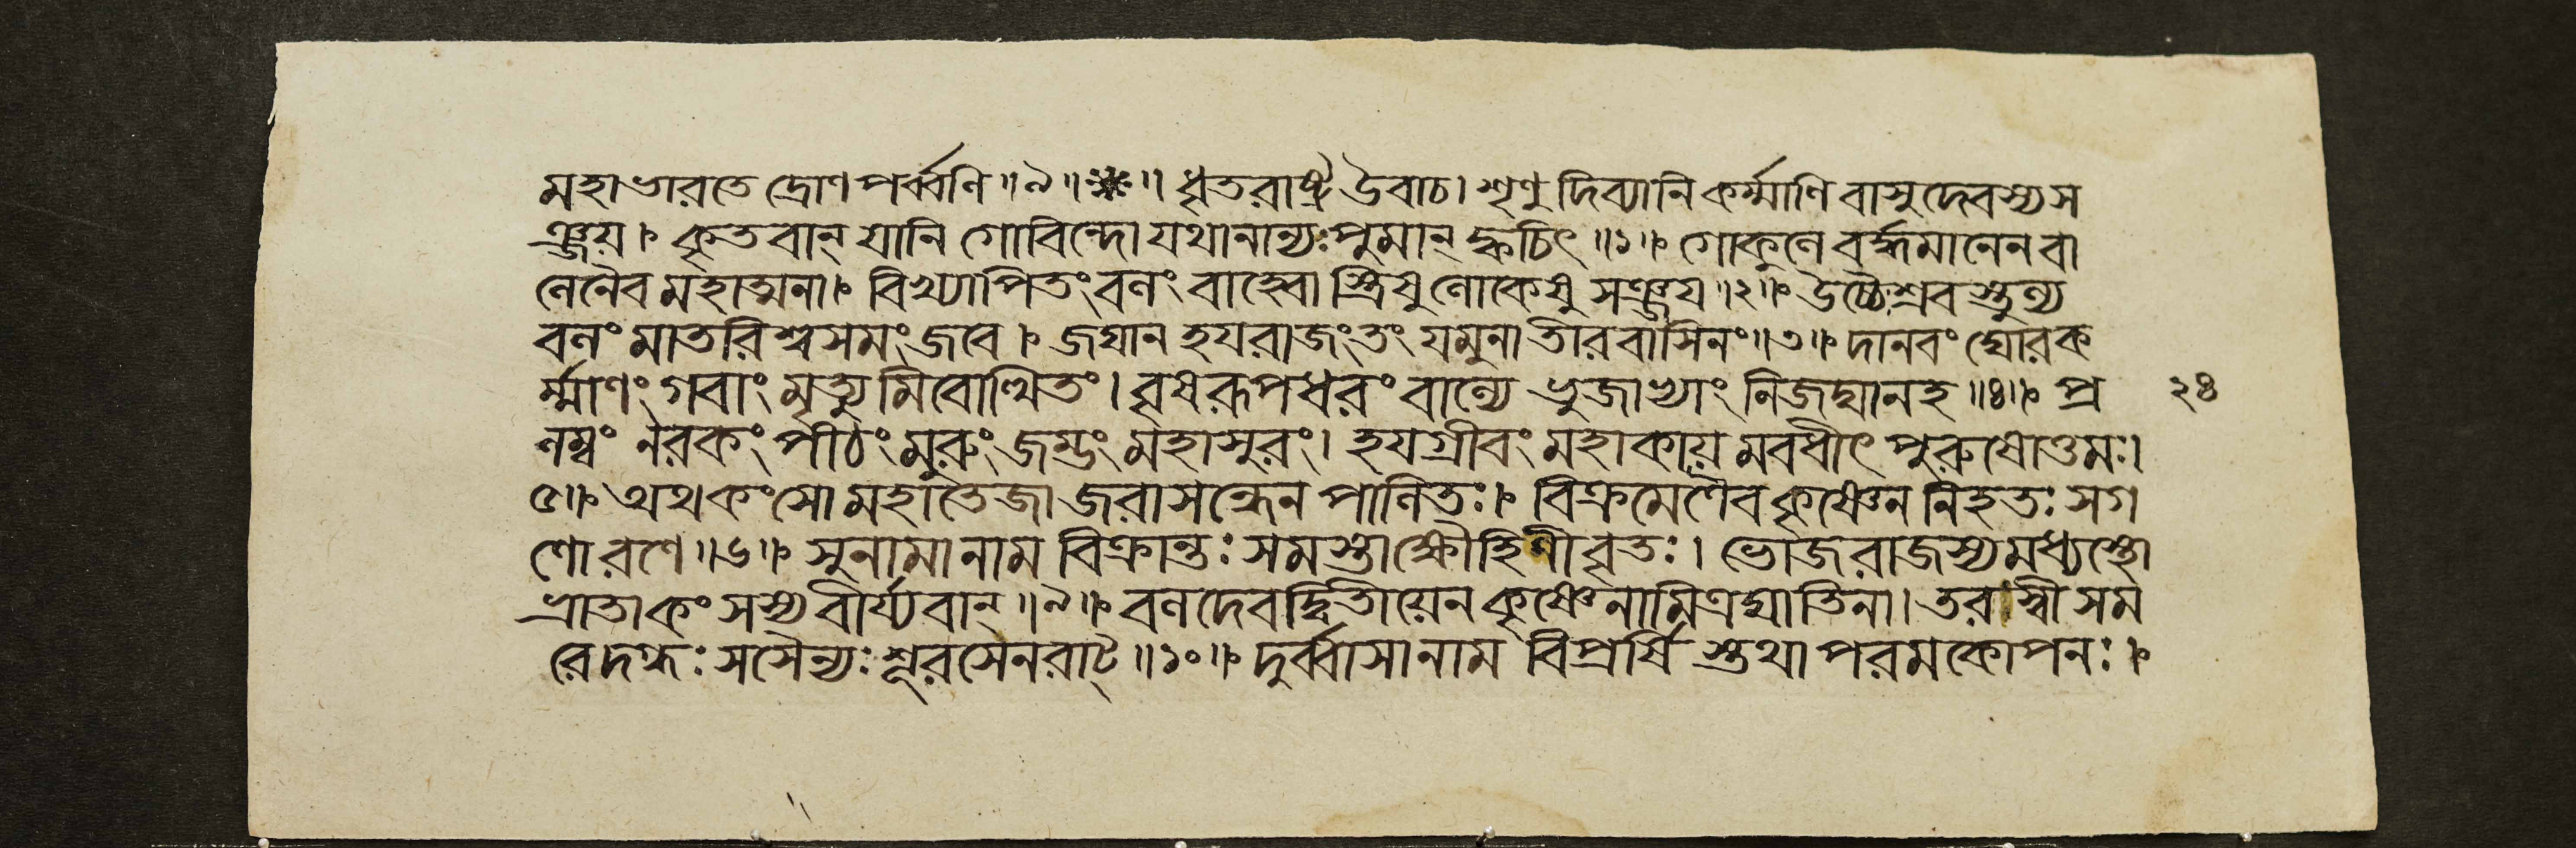 মহাভারতে দ্রোণপর্ব্বণি॥৯॥※॥ধৃতরাষ্ট্র উবাচ। শৃণু দিব্যানি কর্ম্মাণি বাসুদেবস্য স
ঞ্জয়। কৃতবান্ যানি গোবিন্দো যথা নান্যঃ পুমান্ ক্বচিৎ॥১॥ গোকুলে বর্দ্ধমানেন বা
লেনৈব মহাত্মনা। বিখ্যাপিতং বলং বাহ্বো স্ত্রিষু লোকেষু সঞ্জয়॥২॥ উচ্চৈঃশ্রবস্তুল্য
বলং মাতরিশ্বসমং জবে। জঘান হয়রাজং তং যমুনাতীরবাসিনং॥৩॥ দানবং ঘোরক
র্ম্মাণং গবাং মৃত্যুমিবোত্থিতং। বৃষরূপধরং বাল্যে ভুজাভ্যাং নিজঘানহ॥৪॥ প্র ২৪
লম্বং নরকং পীঠং মুরুং জম্ভং মহাসুরং। হয়গ্রীবং মহাকায়মবধীৎ পুরুষোত্তমঃ।
৫॥ অথ কংসো মহাতেজা জরাসন্ধেন পালিতঃ। বিক্রমেণৈব কৃষ্ণেন নিহতঃ সগ
ণো রণে॥৬॥ সুনামা নাম বিক্রান্তঃ সমস্তাক্ষৌহিণীবৃতঃ। ভোজরাজস্য মধ্যস্থো
ভ্রাতা কংসস্য বীর্য্যবান্॥৯॥ বলদেবদ্বিতীয়েন কৃষ্ণেনামিত্রঘাতিনা। তরস্বী সম
রে দগ্ধঃ সসৈন্যঃ শূরসেনরাট্॥১০॥ দুর্ব্বাসা নাম বিপ্রর্ষি স্তথা পরমকোপনঃ।